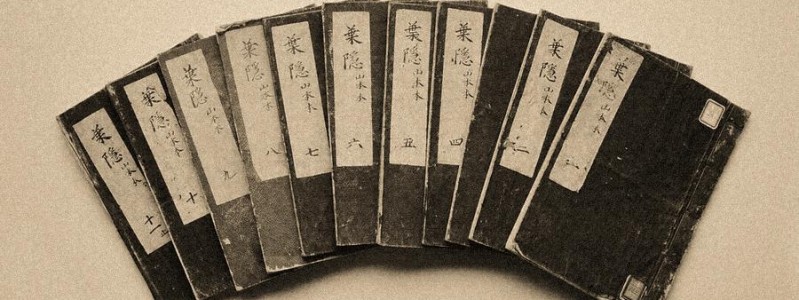 葉隠 山本本
葉隠 山本本 二
葉隠 山本本 四
葉隠 山本本 五
葉隠 山本本 六
葉隠 山本本 七
葉隠 山本本 八
葉隠 山本本 九
葉隠 山本本 十
葉隠 山本本 十一